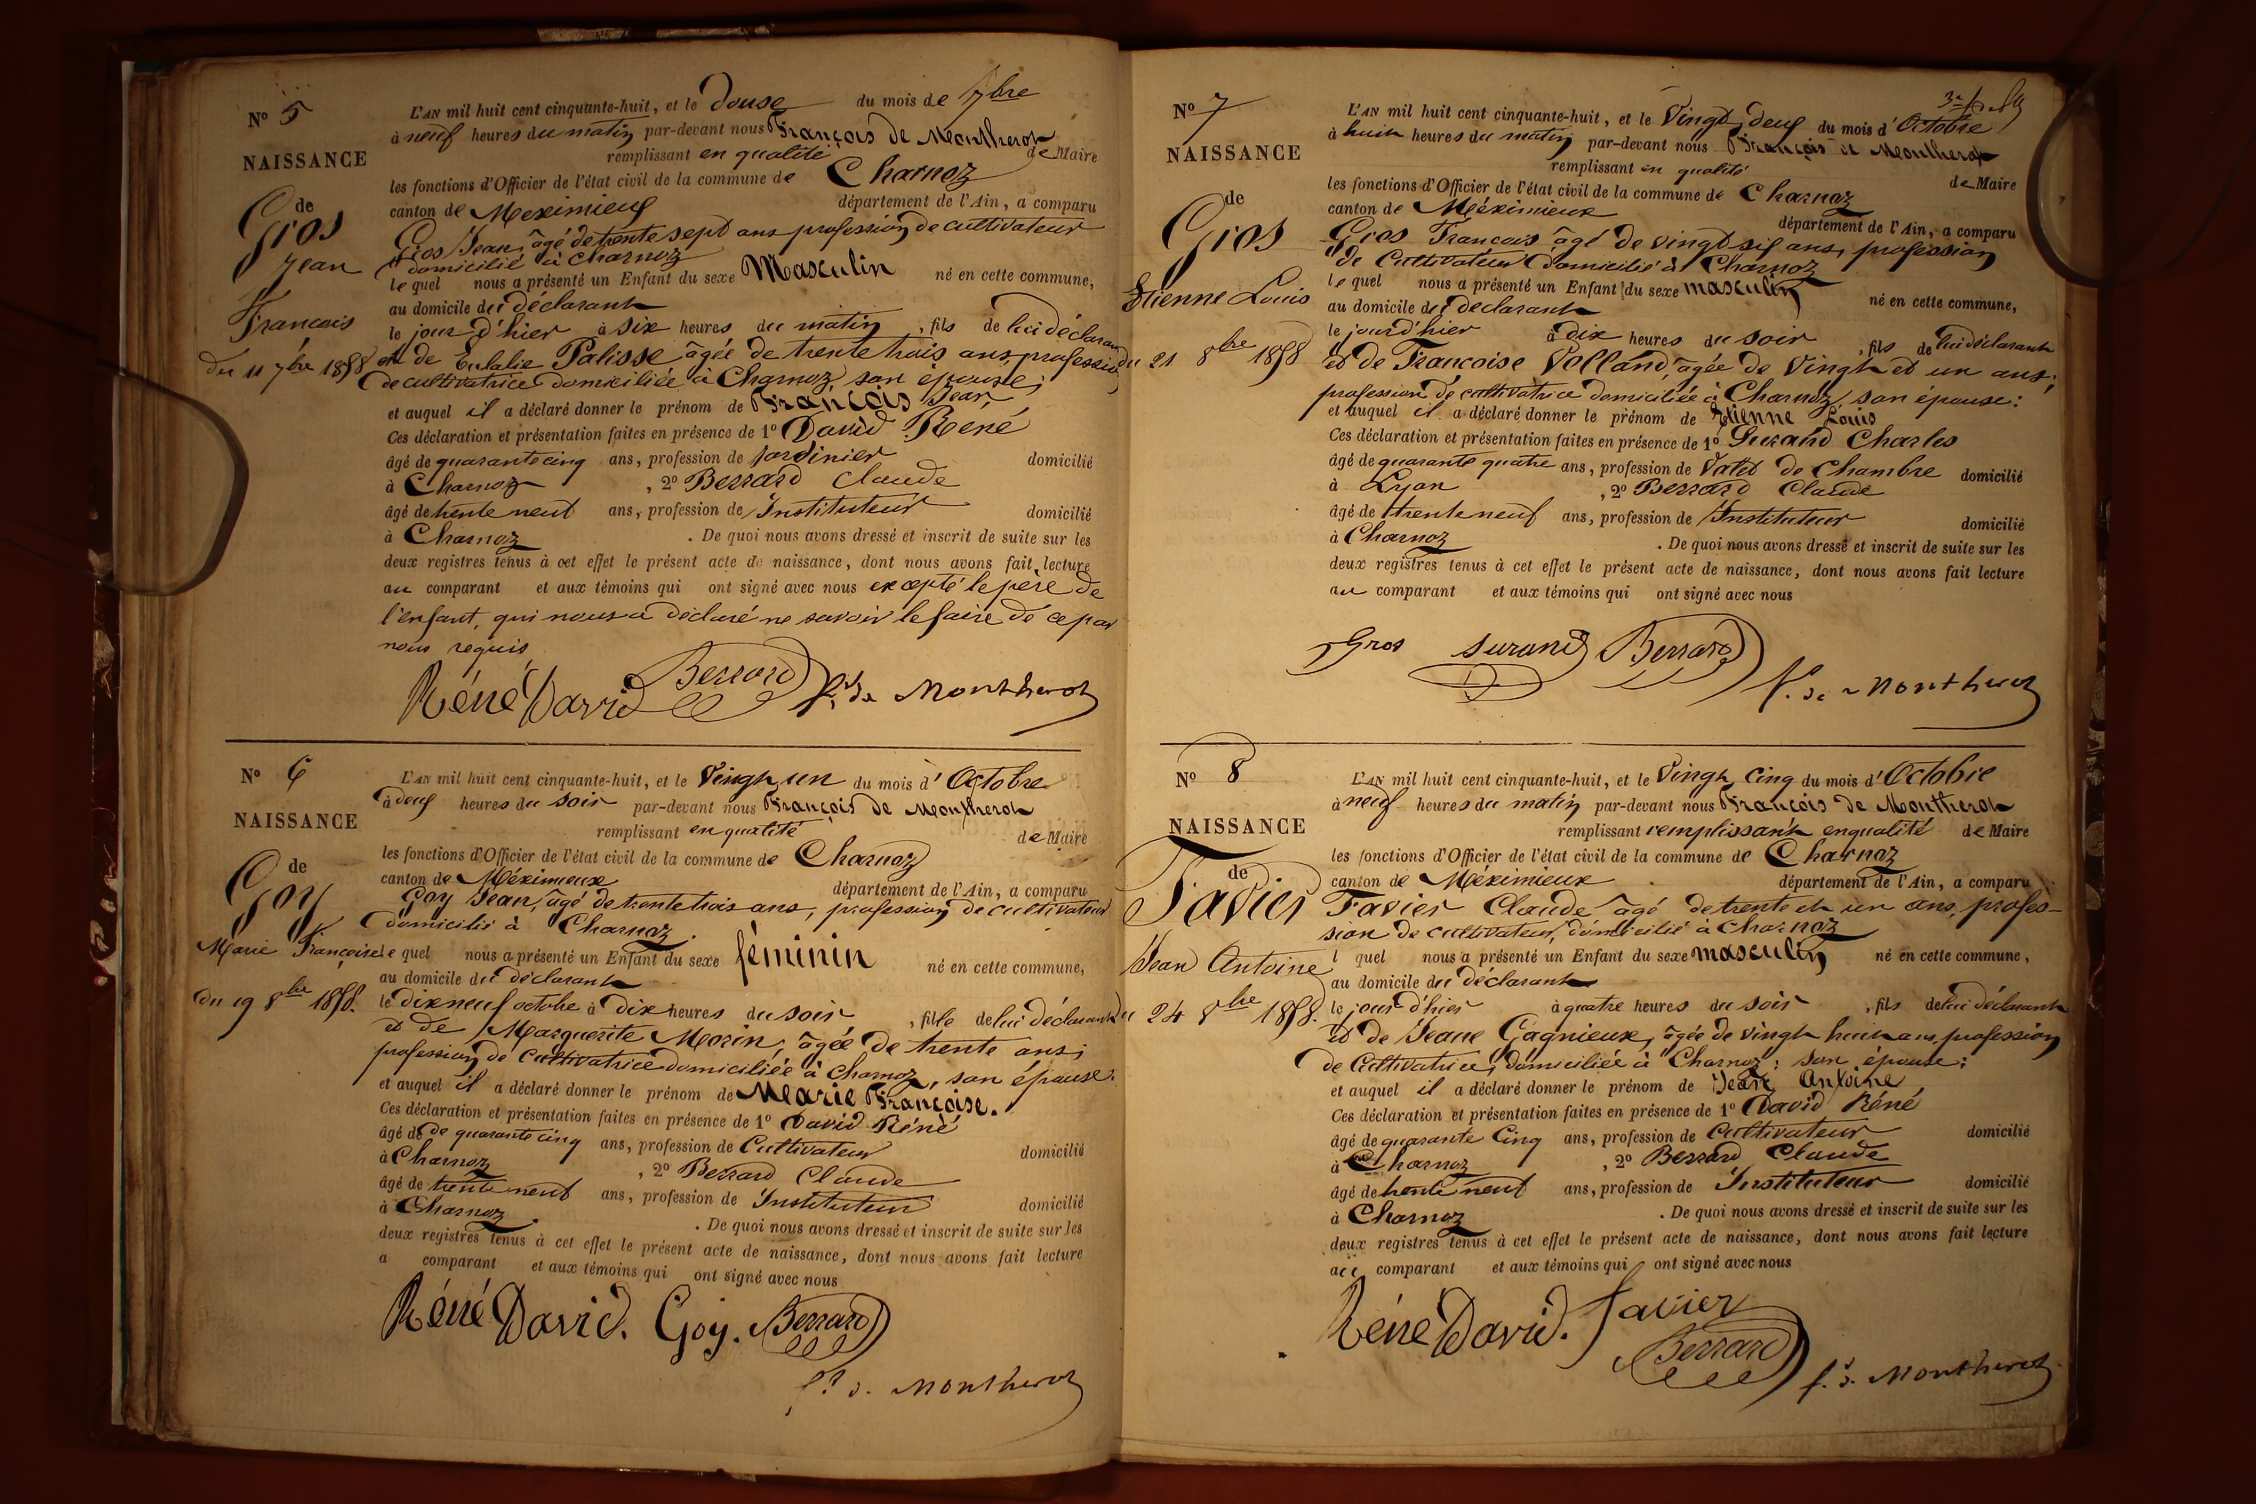 N° 5
NAISSANCE
de
Gros
Jean
François
du 11 7bre 1858
L'AN mil huit cent cinquante-huit, et le Douse du mois de 7bre
à neuf heures du matin par-devant nous François de Montherot
remplissant en qualité de Maire
les fonctions d'Officier de l'état civil de la commune de Charnoz
canton de Meximieux département de l'Ain, a comparu
Gros Jean, âgé de trente sept ans profession de cultivateur
domicilié à Charnoz
le quel nous a présenté un Enfant du sexe Masculin né en cette commune,
au domicile du déclarant
le jour d'hier à six heures du matin, fils de lui déclarant
et de Eulalie Palisse âgée de trente trois ans, profession
de cultivatrice domiciliée à Charnoz, son épouse;
et auquel il a déclaré donner le prénom de François Jean
Ces déclaration et présentation faites en présence de 1° David René
âgé de quarante cinq ans, profession de jardinier domicilié
à Charnoz, 2° Berrard Claude
âgé de trente neuf ans, profession de Instituteur domicilié
à Charnoz. De quoi nous avons dressé et inscrit de suite sur les
deux registres tenus à cet effet le présent acte de naissance, dont nous avons fait lecture
au comparant et aux témoins qui ont signé avec nous excepté le père de
l'enfant, qui nous a déclaré ne savoir le faire de ce par
nous requis
Réné David Berrard f. de Montherot
N° 6
NAISSANCE
de
Goy
Marie Françoise
du 19 8bre 1858.
L'AN mil huit cent cinquante-huit, et le Vingt un du mois d'Octobre
à deux heures du soir par-devant nous François de Montherot
remplissant en qualité de Maire
les fonctions d'Officier de l'état civil de la commune de Charnoz
canton de Méximieux département de l'Ain, a comparu
Goy Jean, âgé de trente trois ans, profession de cultivateur
domicilié à Charnoz.
le quel nous a présenté un Enfant du sexe féminin né en cette commune,
au domicile du déclarant
le dix neuf octobre à dix heures du soir, fille de lui déclarant
et de Marguerite Morin, âgée de trente ans;
profession de cultivatrice domiciliée à Charnoz, son épouse:
et auquel il a déclaré donner le prénom de Marie Françoise.
Ces déclaration et présentation faites en présence de 1° David Réné
âgé de de quarante cinq ans, profession de Cultivateur domicilié
à Charnoz, 2° Berrard Claude
âgé de trente neuf ans, profession de Instituteur domicilié
à Charnoz. De quoi nous avons dressé et inscrit de suite sur les
deux registres tenus à cet effet le présent acte de naissance, dont nous avons fait lecture
a comparant et aux témoins qui ont signé avec nous
Réné David. Goy. Berrard
f. d. Montherot
N° 7
NAISSANCE
de
Gros
Etienne Louis
du 21 8bre 1858
L'AN mil huit cent cinquante-huit, et le Vingt deux du mois d'Octobre
à huit heures du matin par-devant nous François de Montherot
remplissant en qualité de Maire
les fonctions d'Officier de l'état civil de la commune de Charnoz
canton de Méximieux département de l'Ain, a comparu
Gros Francois âgé de vingt six ans, profession
de Cultivateur domicilié à Charnoz
le quel nous a présenté un Enfant du sexe masculin né en cette commune,
au domicile du déclarant
le jour d'hier à dix heures du soir, fils de lui déclarant
et de Francoise Volland, âgée de Vingt et un ans;
profession de cultivatrice domiciliée à Charnoz, son épouse:
et auquel il a déclaré donner le prénom de Etienne Louis
Ces déclaration et présentation faites en présence de 1° Durand Charles
âgé de quarante quatre ans, profession de Valet de Chambre domicilié
à Lyon, 2° Berrard Claude
âgé de trente neuf ans, profession de Instituteur domicilié
à Charnoz. De quoi nous avons dressé et inscrit de suite sur les
deux registres tenus à cet effet le présent acte de naissance, dont nous avons fait lecture
au comparant et aux témoins qui ont signé avec nous
Gros Durand Berrard
f. de Montherot
N° 8
NAISSANCE
de
Favier
Jean Antoine
du 24 8bre 1858.
L'AN mil huit cent cinquante-huit, et le Vingt Cinq du mois d'Octobre
à neuf heures du matin par-devant nous François de Montherot
remplissant remplissant en qualité de Maire
les fonctions d'Officier de l'état civil de la commune de Charnoz
canton de Méximieux département de l'Ain, a comparu
Favier Claude âgé de trente et un ans, profes-
sion de cultivateur, domicilié à Charnoz
l quel nous a présenté un Enfant du sexe masculin né en cette commune,
au domicile du déclarant
le jour d'hier à quatre heures du soir, fils de lui déclarant
et de Jeane Gagnieux, âgée de vingt huit ans, profession
de Cultivatrice, domiciliée à Charnoz; son épouse:
et auquel il a déclaré donner le prénom de Jean Antoine
Ces déclaration et présentation faites en présence de 1° David Réné
âgé de quarante Cinq ans, profession de Cultivateur domicilié
à Charnoz, 2° Berrard Claude
âgé de trente neuf ans, profession de Instituteur domicilié
à Charnoz. De quoi nous avons dressé et inscrit de suite sur les
deux registres tenus à cet effet le présent acte de naissance, dont nous avons fait lecture
au comparant et aux témoins qui ont signé avec nous
Réné David. Favier
Berrard f. d. Montherot